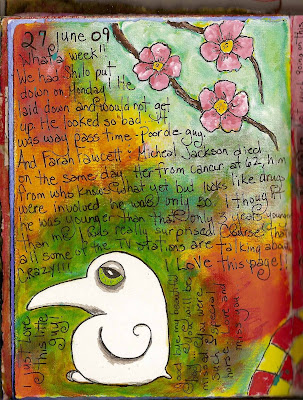 27 June 09
What a week!!
We had Shilo put
down on Monday! He
laid down and would not get
up. He looked so bad. It
was way pass time - poor ole guy.
And Farah Fawcett & Micheal Jackson died
on the same day. Her from cancer at 62, him
from who knows what yet but looks like drugs
were involved he was only 50. I thought
he was younger than that. only 3 years younger
than me! Bob really surprised. Course that's
all some of the TV stations are talking about
Crazy!!!!
I Love this page!!
I just love
this little
guy!
missed. You were
such a special
horse. I
miss you